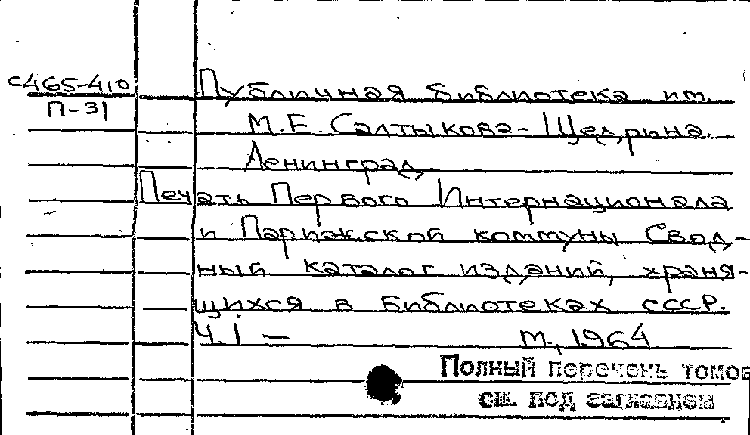 С465-410
П-31
Публичная библиотека им.
М.Е Салтыкова-Щедрина.
Ленинград
Печать Первого Интернационала
и Парижской коммуны Свод-
ный каталог изданий, храня-
щихся в библиотеках СССР.
Ч.1 – М., 1964
Полный перечень томов
см. под заглавием